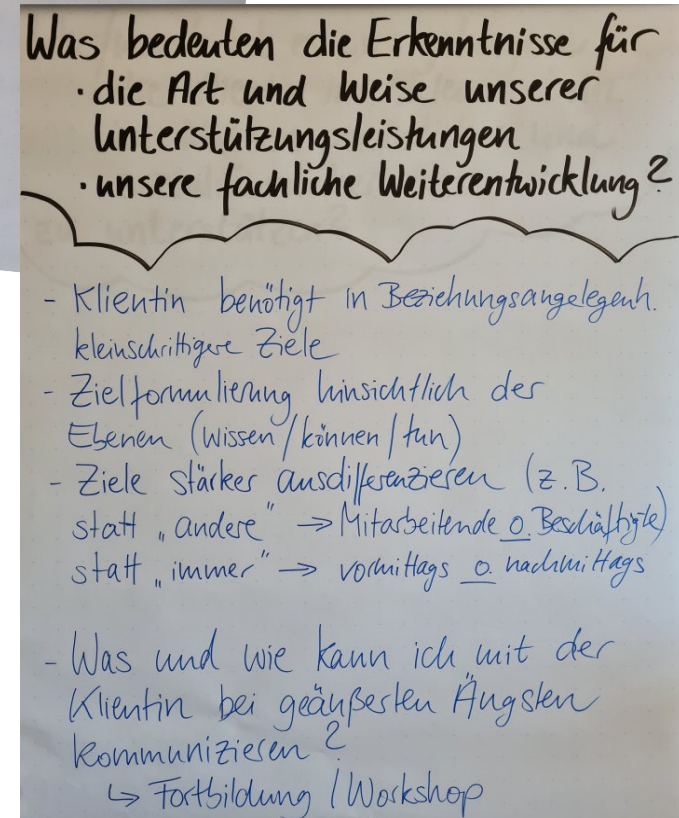 Was bedeuten die Erkenntnisse für
· die Art und Weise unserer
Unterstützungsleistungen
· unsere fachliche Weiterentwicklung?
- Klientin benötigt in Beziehungsangelegenh.
kleinschrittigere Ziele
- Zielformulierung hinsichtlich der
Ebenen (wissen/können/tun)
- Ziele stärker ausdifferenzieren (z.B.
statt „andere" → Mitarbeitende o. Beschäftigte)
statt „immer" → vormittags o. nachmittags
- Was und wie kann ich mit der
Klientin bei geäußerten Ängsten
kommunizieren?
↳ Fortbildung / Workshop